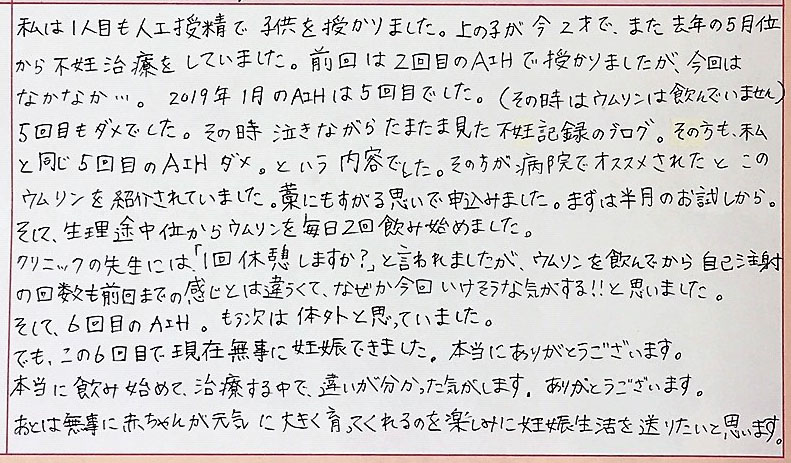 私は1人目も人工授精で子供を授かりました。上の子が今2才で、また去年の5月位
から不妊治療をしていました。前回は2回目のAIHで授かりましたが、今回は
なかなか…。2019年1月のAIHは5回目でした。(その時はウムリンは飲んでいません)
5回目もダメでした。その時泣きながらたまたま見た不妊記録のブログ。その方も、私
と同じ5回目のAIHダメ。という内容でした。その方が病院でオススメされたとこの
ウムリンを紹介されていました。藁にもすがる思いで申込みました。まずは半月のお試しから。
そして、生理途中位からウムリンを毎日2回飲み始めました。
クリニックの先生には、「1回休憩しますか?」と言われましたが、ウムリンを飲んでから自己注射
の回数も前回までの感じとは違うくて、なぜか今回いけそうな気がする!!と思いました。
そして、6回目のAIH。もう次は体外と思っていました。
でも、この6回目で現在無事に妊娠できました。本当にありがとうございます。
本当に飲み始めて、治療する中で、違いが分かった気がします。ありがとうございます。
あとは無事に赤ちゃんが元気に大きく育ってくれるのを楽しみに妊娠生活を送りたいと思います。